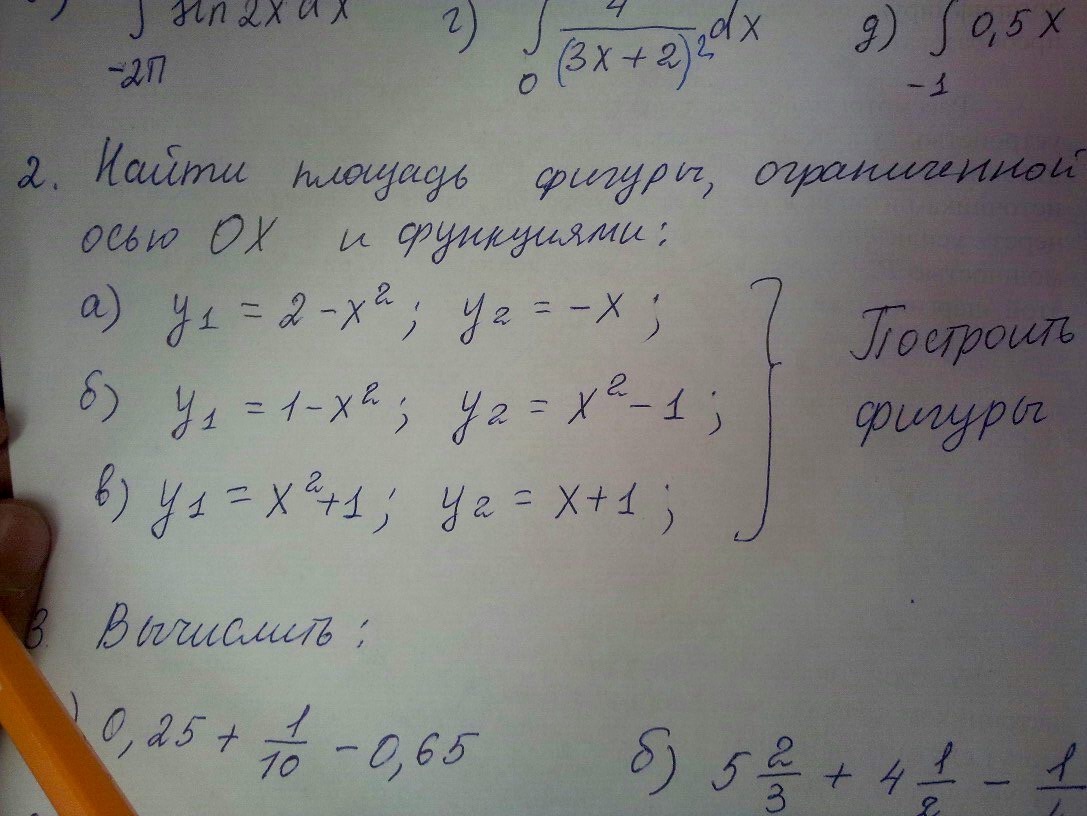 ∫ sin 2x dx г) ∫ 4/(3x+2)² dx д) ∫ 0,5x
-2π 0 -1
2. Найти площадь фигуры, ограниченной
осью OX и функциями:
а) y₁ = 2 - x²; y₂ = -x;
б) y₁ = 1 - x²; y₂ = x² - 1;
в) y₁ = x² + 1; y₂ = x + 1;
Построить
фигуры
3. Вычислить:
) 0,25 + 1/10 - 0,65 б) 5 2/3 + 4 1/2 -